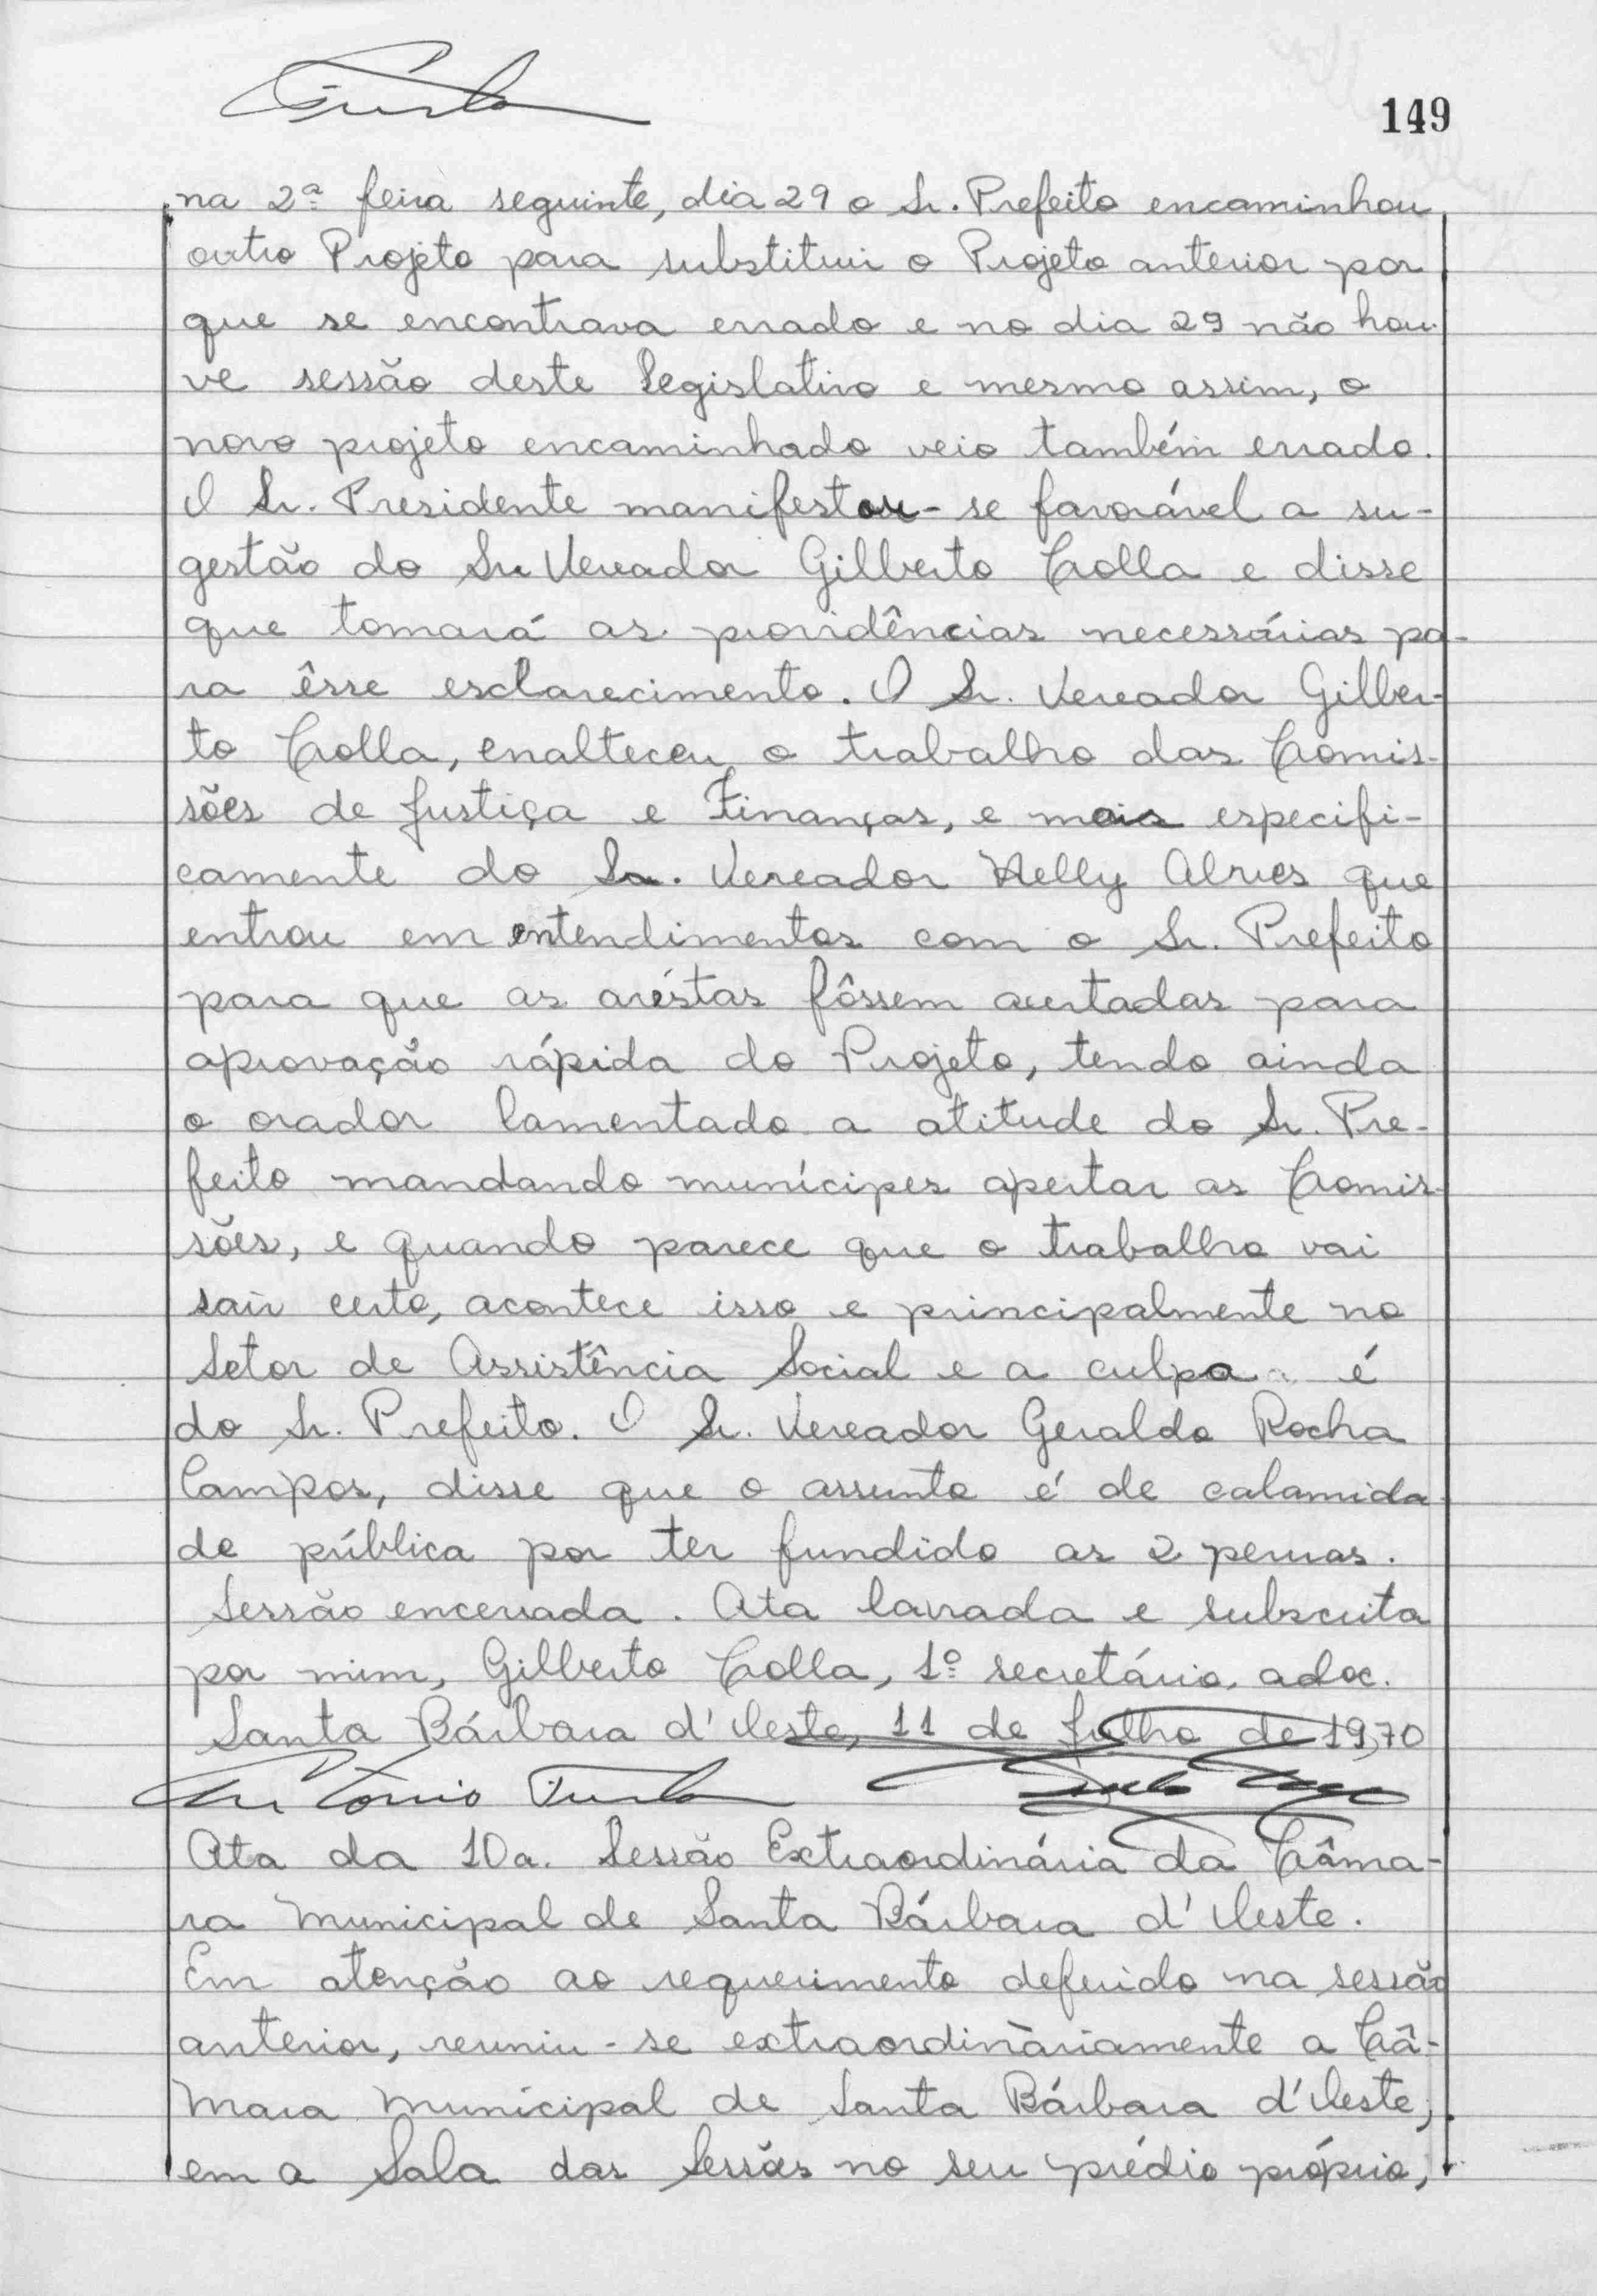 149
na 2ª feira seguinte, dia 29 o Sr. Prefeito encaminhou
outro Projeto para substituir o Projeto anterior por
que se encontrava errado e no dia 29 não hou-
ve sessão deste Legislativo e mesmo assim, o
novo projeto encaminhado veio também errado.
O Sr. Presidente manifestou-se favorável a su-
gestão do Sr. Vereador Gilberto Crolla e disse
que tomará as providências necessárias pa-
ra êsse esclarecimento. O Sr. Vereador Gilber-
to Crolla, enalteceu o trabalho das Comis-
sões de Justiça e Finanças, e mais especifi-
camente do Sr. Vereador Nelly Alves que
entrou em entendimentos com o Sr. Prefeito
para que as aréstas fôssem acertadas para
aprovação rápida do Projeto, tendo ainda
o orador lamentado a atitude do Sr. Pre-
feito mandando munícipes apertar as Comis-
sões, e quando parece que o trabalho vai
sair certo, acontece isso e principalmente no
Setor de Assistência Social e a culpa é
do Sr. Prefeito. O Sr. Vereador Geraldo Rocha
Campos, disse que o assunto é de calamida-
de pública por ter fundido as 2 peruas.
Sessão encerrada. Ata lavrada e subscrita
por mim, Gilberto Crolla, 1º secretário, adoc.
Santa Bárbara d'Oeste, 11 de Julho de 1970
Antonio
Ata da 10a. Sessão Extraordinária da Câma-
ra Municipal de Santa Bárbara d'Oeste.
Em atenção ao requerimento deferido na sessão
anterior, reuniu-se extraordinàriamente a Câ-
mara Municipal de Santa Bárbara d'Oeste,
em a Sala das Sessões no seu prédio próprio,